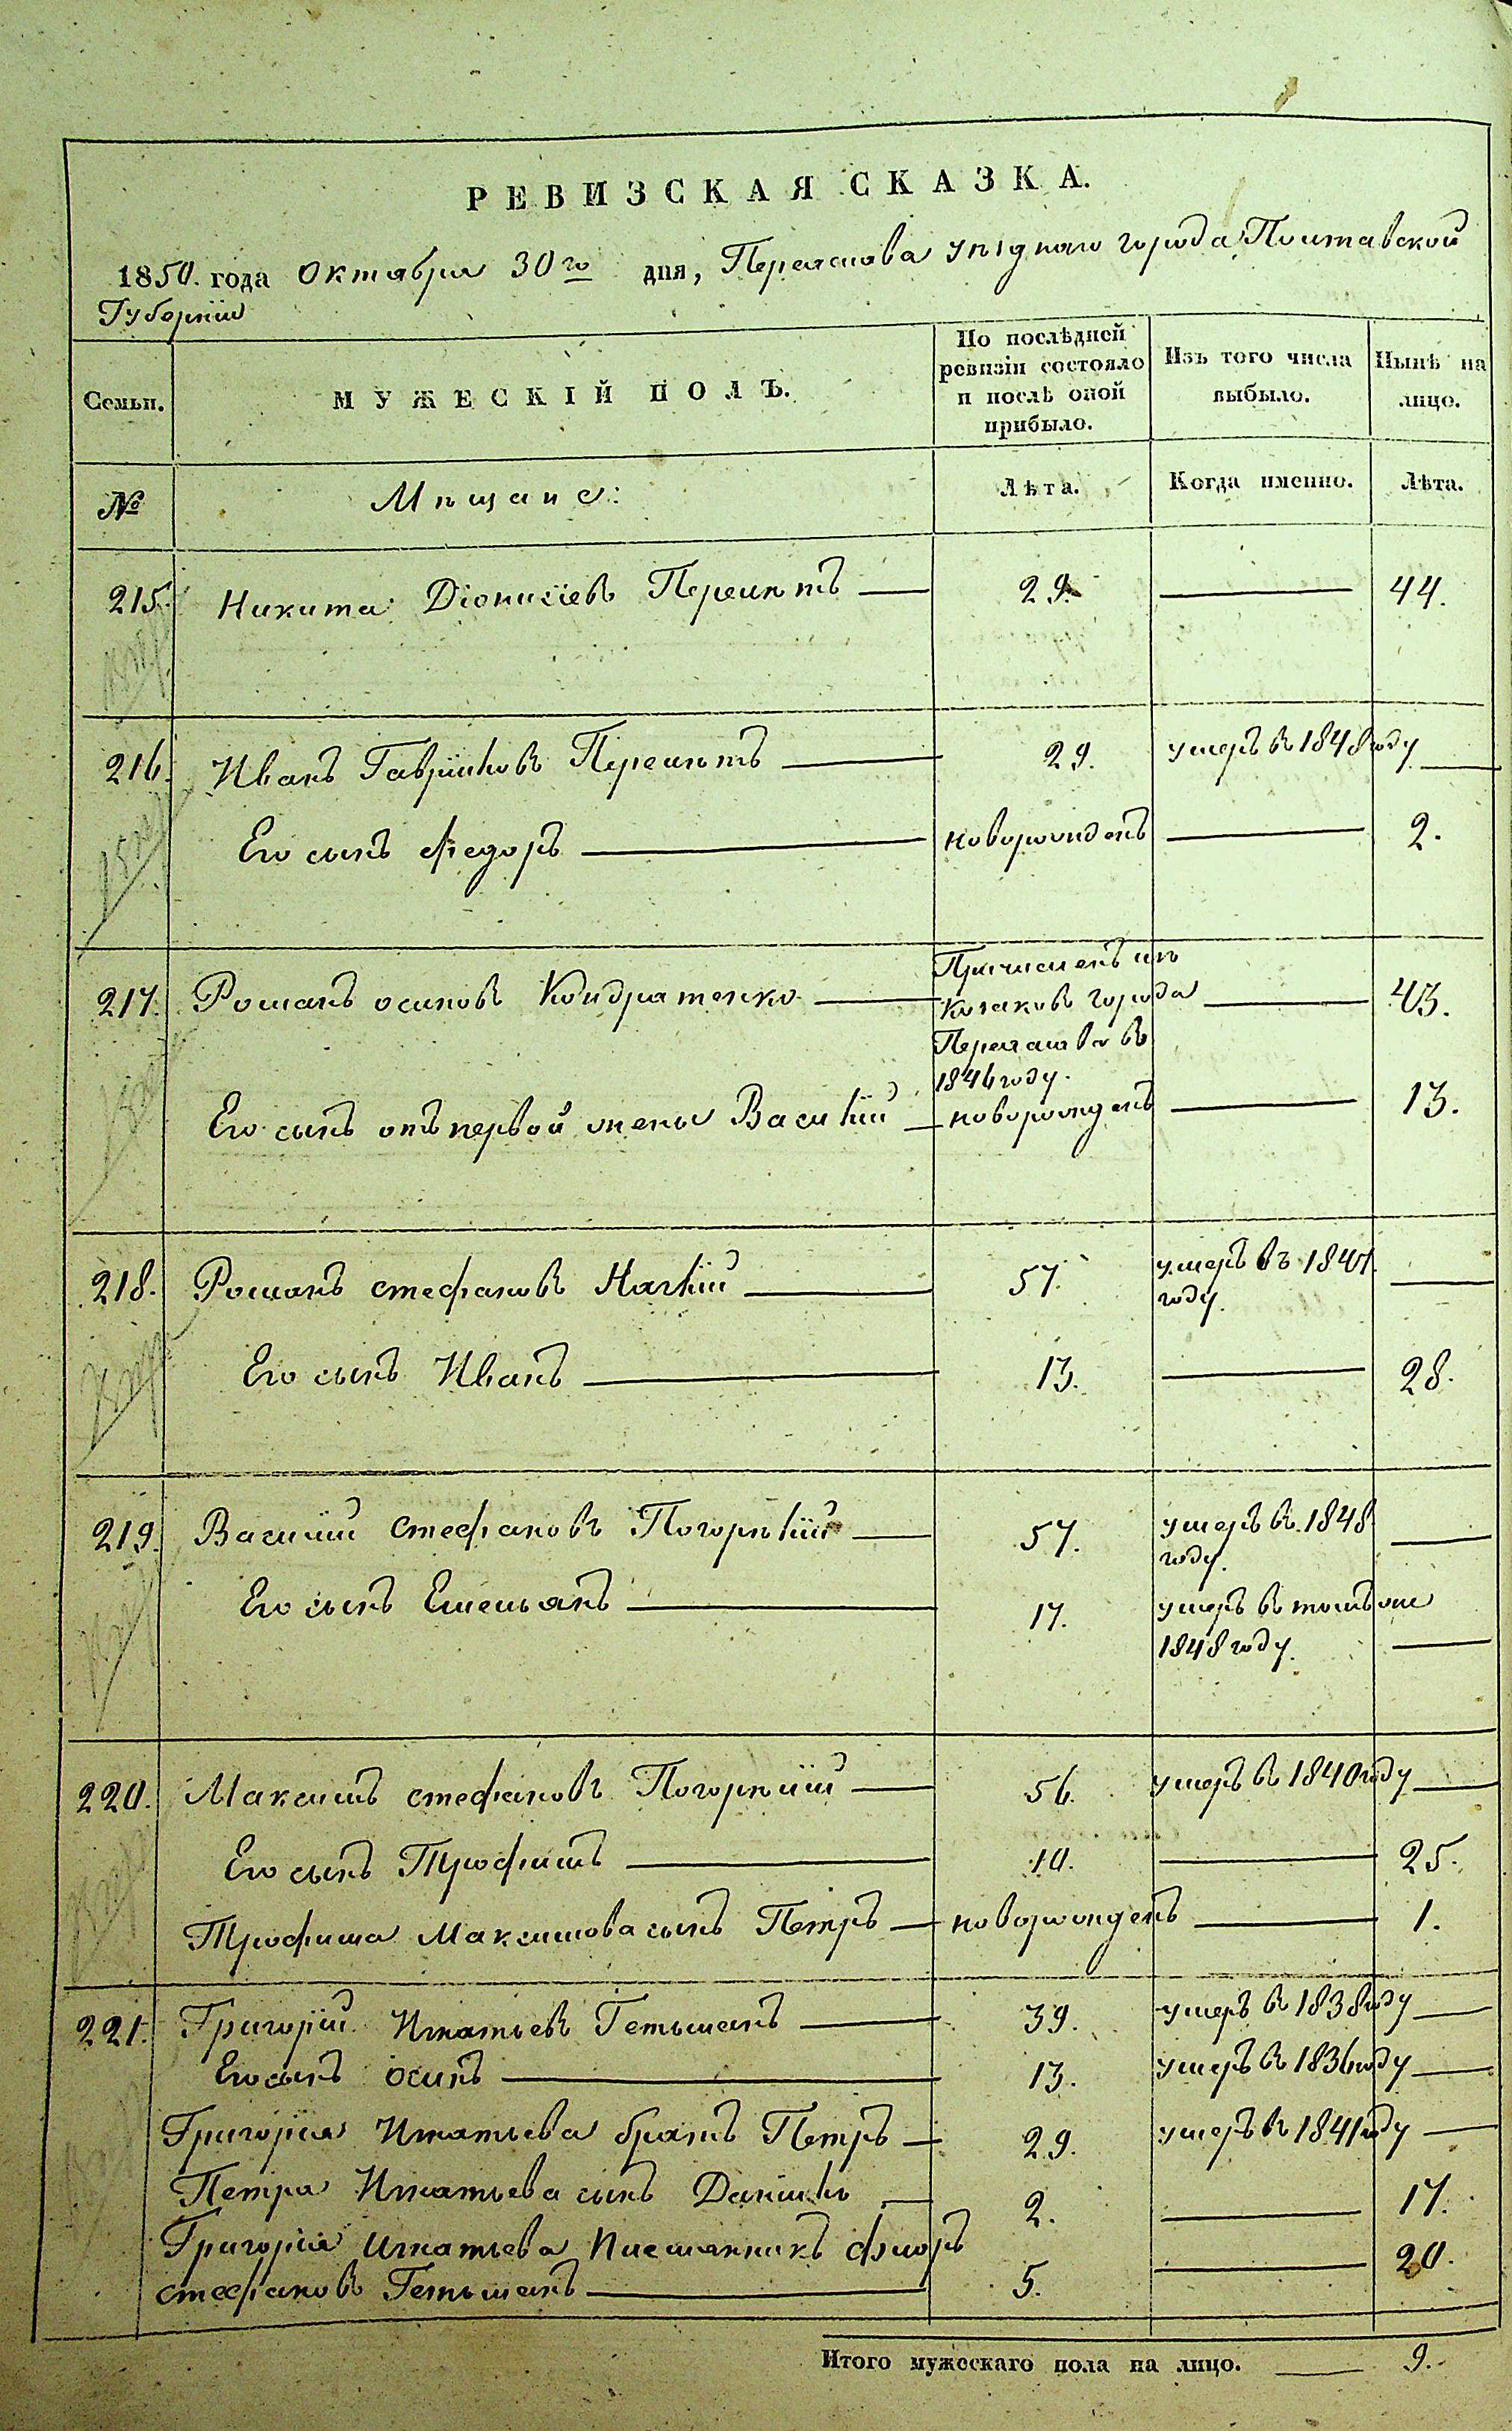 РЕВИЗСКАЯ СКАЗКА.
1850. года Октября 30го дня, Переяслова уѣзднаго города Полтавской
Губерніи
Семьи. МУЖЕСКІЙ ПОЛЪ. По послѣдней ревизіи состояло и послѣ оной прибыло. Изъ того числа выбыло. Нынѣ на лицо.
№ Мѣщане: Лѣта. Когда именно. Лѣта.
215. Никита Діонисіевъ Перепѣтъ 29. 44.
216. Иванъ Гавріиловъ Перепѣтъ 29. умеръ въ 1848 году
Его сынъ Федоръ новорожденъ 2.
217. Романъ Осиповъ Кондратенко Причисленъ изъ
козаковъ города 43.
Переяслова въ
1846 году.
Его сынъ отъ первой жены Василій новорожденъ 13.
218. Романъ Стефановъ 57. умеръ въ 1847.
году.
Его сынъ Иванъ 13. 28.
219. Василій Стефановъ Погорѣлій 57. умеръ въ 1848
году.
Его сынъ Емельянъ 17. умеръ въ томъ же
1848 году.
220. Максимъ Стефановъ Погорѣлій 56. умеръ въ 1840 году
Его сынъ Трофимъ 10. 25.
Трофима Максимова сынъ Петръ новорожденъ 1.
221. Григорій Игнатьевъ Гетьманъ 39. умеръ въ 1838 году
Его сынъ Осипъ 13. умеръ въ 1836 году
Григорія Игнатьева братъ Петръ 29. умеръ въ 1841 году
Петра Игнатьева сынъ Даніилъ 2. 17.
Григорія Игнатьева племянникъ Флоръ
Стефановъ Гетьманъ 5. 20.
Итого мужескаго пола на лицо. 9.